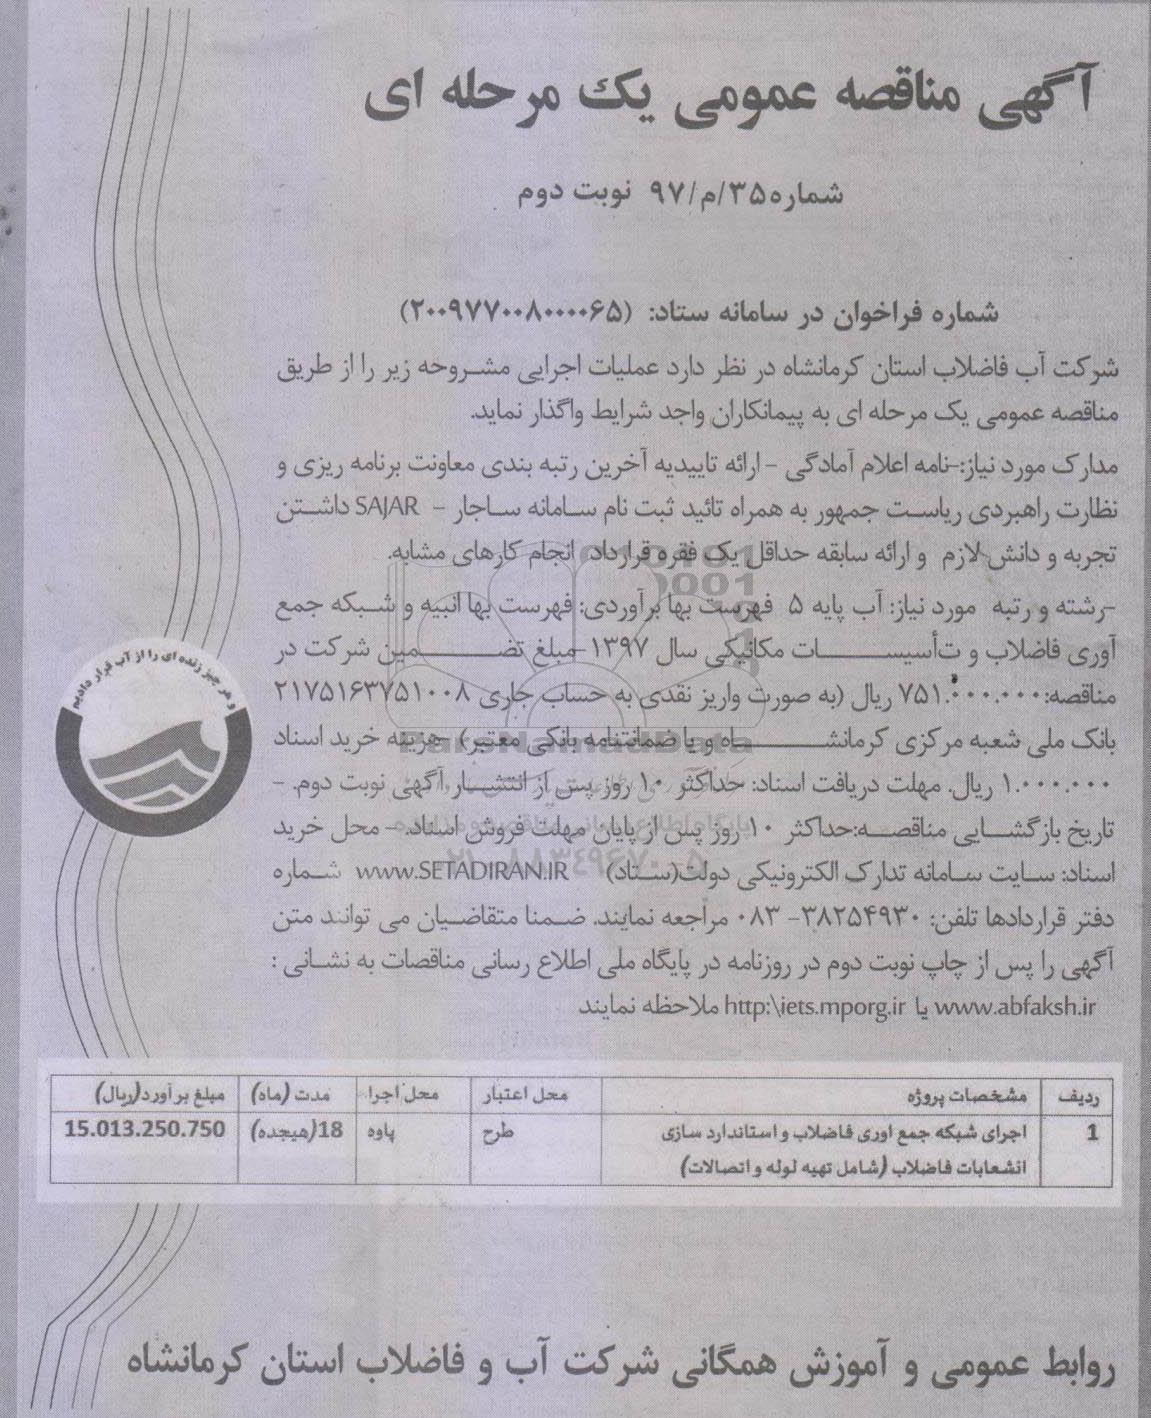 آگهی مناقصه عمومی یک مرحله ای
شماره ۳۵/م/۹۷ نوبت دوم
شماره فراخوان در سامانه ستاد: (۲۰۰۹۷۷۰۰۸۰۰۰۰۶۵)
شرکت آب فاضلاب استان کرمانشاه در نظر دارد عملیات اجرایی مشروحه زیر را از طریق
مناقصه عمومی یک مرحله ای به پیمانکاران واجد شرایط واگذار نماید.
مدارک مورد نیاز:-نامه اعلام آمادگی - ارائه تاییدیه آخرین رتبه بندی معاونت برنامه ریزی و
نظارت راهبردی ریاست جمهور به همراه تائید ثبت نام سامانه ساجار - SAJAR داشتن
تجربه و دانش لازم و ارائه سابقه حداقل یک فقره قرارداد انجام کارهای مشابه.
-رشته و رتبه مورد نیاز: آب پایه ۵ فهرست بها برآوردی: فهرست بها ابنیه و شبکه جمع
آوری فاضلاب و تأسیسات مکانیکی سال ۱۳۹۷-مبلغ تضمین شرکت در
مناقصه:۷۵۱.۰۰۰.۰۰۰ ریال (به صورت واریز نقدی به حساب جاری ۲۱۷۵۱۶۳۷۵۱۰۰۸
بانک ملی شعبه مرکزی کرمانشاه و یا ضمانتنامه بانکی معتبر) -هزینه خرید اسناد
۱.۰۰۰.۰۰۰ ریال. مهلت دریافت اسناد: حداکثر ۱۰ روز پس از انتشار آگهی نوبت دوم. -
تاریخ بازگشایی مناقصه:حداکثر ۱۰ روز پس از پایان مهلت فروش اسناد. - محل خرید
اسناد: سایت سامانه تدارک الکترونیکی دولت(ستاد) www.SETADIRAN.IR شماره
دفتر قراردادها تلفن: ۳۸۲۵۴۹۳۰- ۰۸۳ مراجعه نمایند. ضمنا متقاضیان می توانند متن
آگهی را پس از چاپ نوبت دوم در روزنامه در پایگاه ملی اطلاع رسانی مناقصات به نشانی :
www.abfaksh.ir یا http:\iets.mporg.ir ملاحظه نمایند
و هر چیز زنده ای را از آب قرار دادیم
ParsNamadData
ردیف مشخصات پروژه محل اعتبار محل اجرا مدت (ماه) مبلغ برآورد(ریال)
1 اجرای شبکه جمع اوری فاضلاب و استاندارد سازی طرح پاوه 18(هیجده) 15.013.250.750
انشعابات فاضلاب (شامل تهیه لوله و اتصالات)
روابط عمومی و آموزش همگانی شرکت آب و فاضلاب استان کرمانشاه